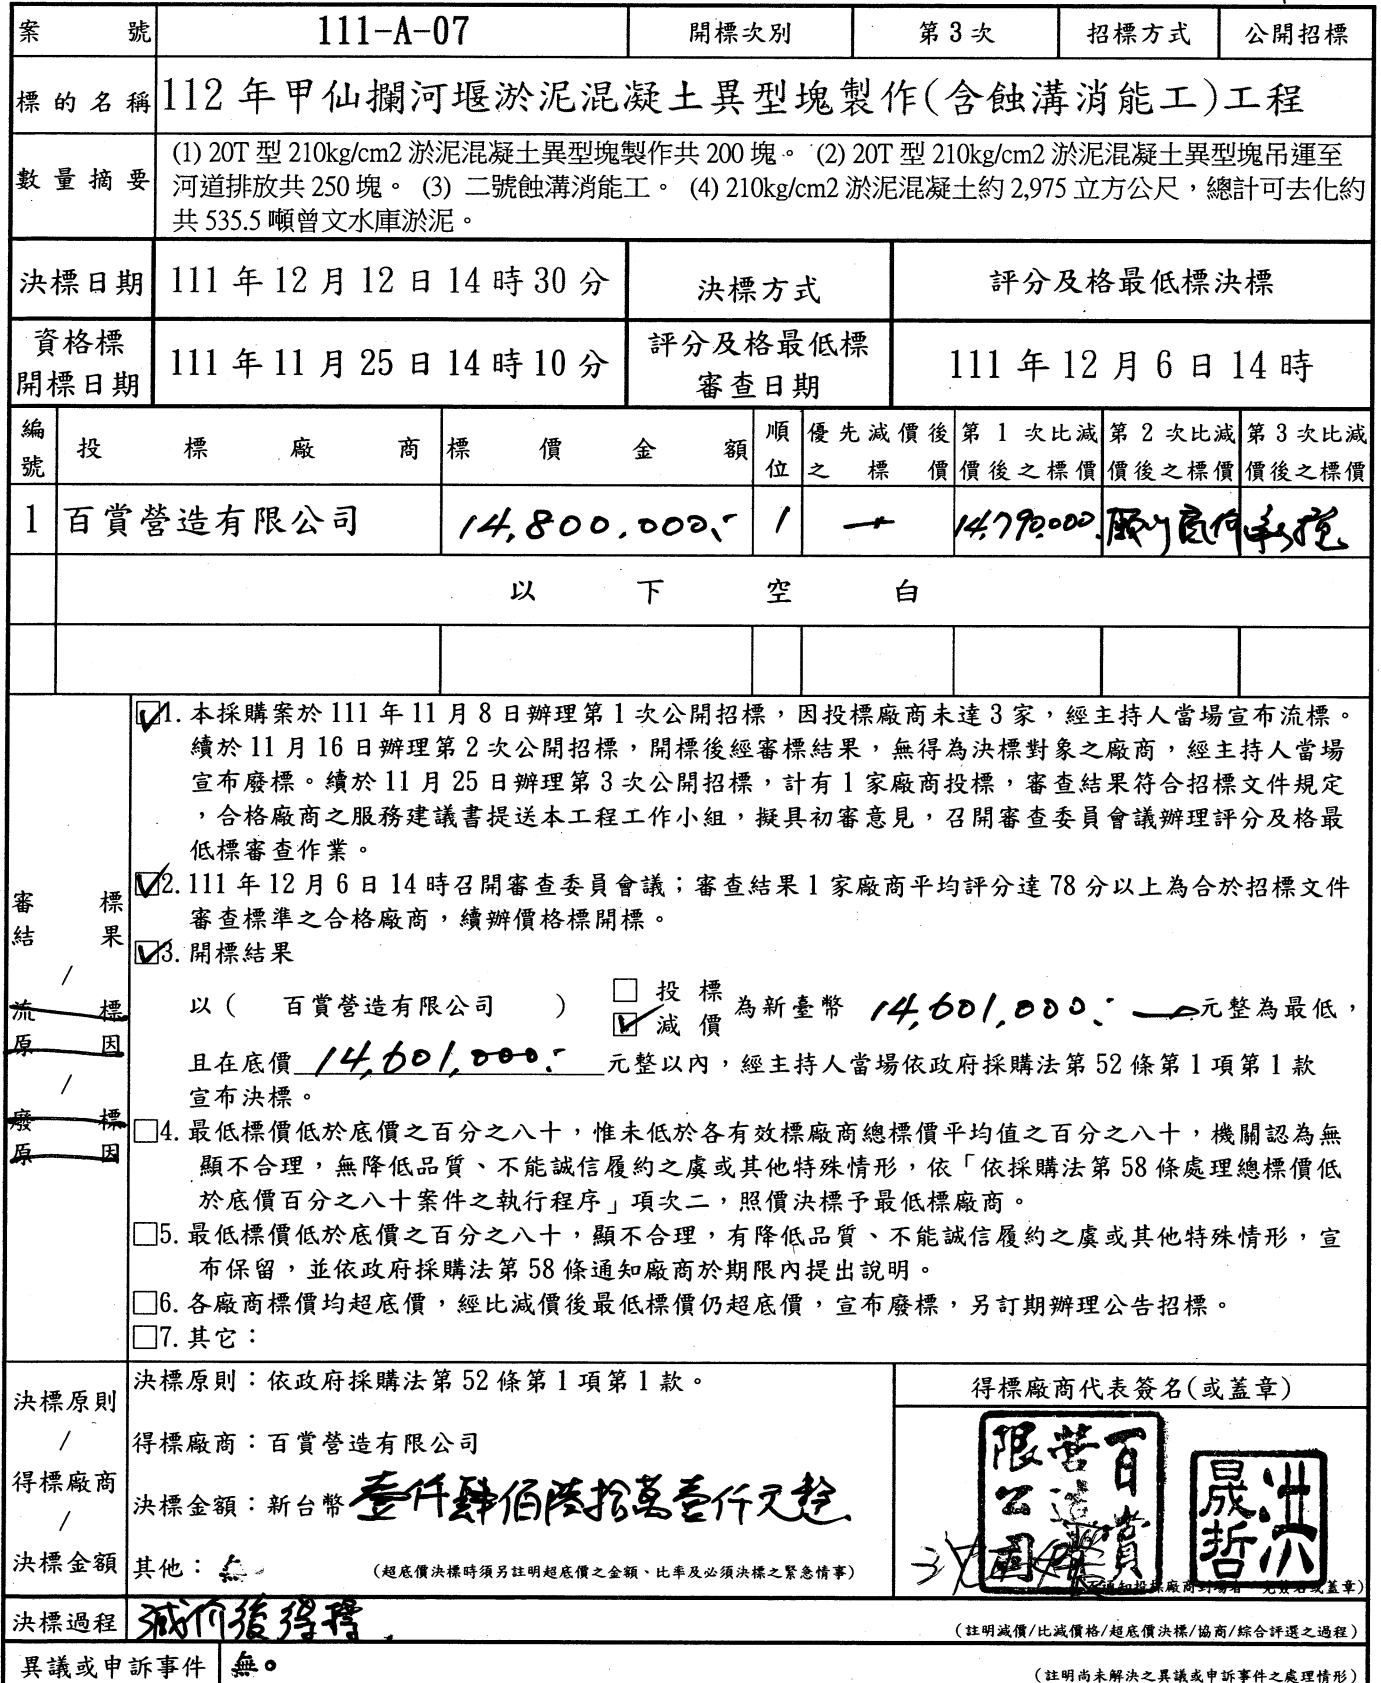 案號 111-A-07 開標次別 第3次 招標方式 公開招標
標的名稱 112年甲仙攔河堰淤泥混凝土異型塊製作(含蝕溝消能工)工程
數量摘要 (1) 20T 型 210kg/cm2 淤泥混凝土異型塊製作共 200 塊。 (2) 20T 型 210kg/cm2 淤泥混凝土異型塊吊運至
河道排放共 250 塊。 (3) 二號蝕溝消能工。 (4) 210kg/cm2 淤泥混凝土約 2,975 立方公尺,總計可去化約
共 535.5 噸曾文水庫淤泥。
決標日期 111年12月12日14時30分 決標方式 評分及格最低標決標
資格標開標日期 111年11月25日14時10分 評分及格最低標審查日期 111年12月6日14時
編號 投標廠商 標價金額 順位 優先減價後之標價 第1次比減價後之標價 第2次比減價後之標價 第3次比減價後之標價
1 百賞營造有限公司 14,800,000.- 1 — 14,790,000. 願以底價承攬
以下空白
審標結果/流標原因/廢標原因
☑1. 本採購案於111年11月8日辦理第1次公開招標,因投標廠商未達3家,經主持人當場宣布流標。
續於11月16日辦理第2次公開招標,開標後經審標結果,無得為決標對象之廠商,經主持人當場
宣布廢標。續於11月25日辦理第3次公開招標,計有1家廠商投標,審查結果符合招標文件規定
,合格廠商之服務建議書提送本工程工作小組,擬具初審意見,召開審查委員會議辦理評分及格最
低標審查作業。
☑2. 111年12月6日14時召開審查委員會議;審查結果1家廠商平均評分達78分以上為合於招標文件
審查標準之合格廠商,續辦價格標開標。
☑3. 開標結果
以( 百賞營造有限公司 ) □投標 ☑減價 為新臺幣 14,601,000.- 元整為最低,
且在底價 14,601,000.- 元整以內,經主持人當場依政府採購法第52條第1項第1款
宣布決標。
□4. 最低標價低於底價之百分之八十,惟未低於各有效標廠商總標價平均值之百分之八十,機關認為無
顯不合理,無降低品質、不能誠信履約之虞或其他特殊情形,依「依採購法第58條處理總標價低
於底價百分之八十案件之執行程序」項次二,照價決標予最低標廠商。
□5. 最低標價低於底價之百分之八十,顯不合理,有降低品質、不能誠信履約之虞或其他特殊情形,宣
布保留,並依政府採購法第58條通知廠商於期限內提出說明。
□6. 各廠商標價均超底價,經比減價後最低標價仍超底價,宣布廢標,另訂期辦理公告招標。
□7. 其它:
決標原則/得標廠商/決標金額
決標原則:依政府採購法第52條第1項第1款。
得標廠商:百賞營造有限公司
決標金額:新台幣壹仟肆佰陸拾萬壹仟元整
其他:無 (超底價決標時須另註明超底價之金額、比率及必須決標之緊急情事)
得標廠商代表簽名(或蓋章)
百賞營造有限公司
洪晟哲
決標過程 減價後得標. (註明減價/比減價格/超底價決標/協商/綜合評選之過程)
異議或申訴事件 無。 (註明尚未解決之異議或申訴事件之處理情形)